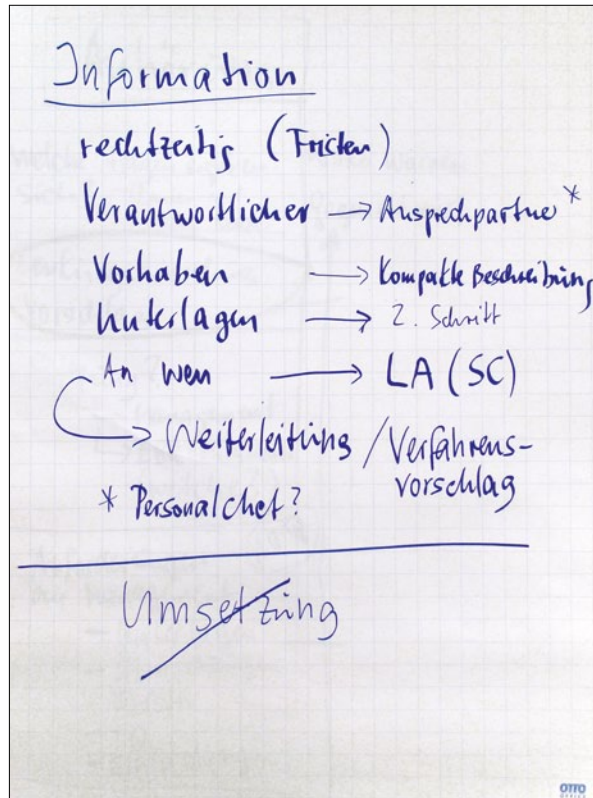 Information
rechtzeitig (Fristen)
Verantwortlicher → Ansprechpartner *
Vorhaben → Kompakte Beschreibung
Unterlagen → 2. Schritt
An wen → LA (SC)
→ Weiterleitung / Verfahrens-
vorschlag
* Personalchef?
Umsetzung
OTTO
OFFICE